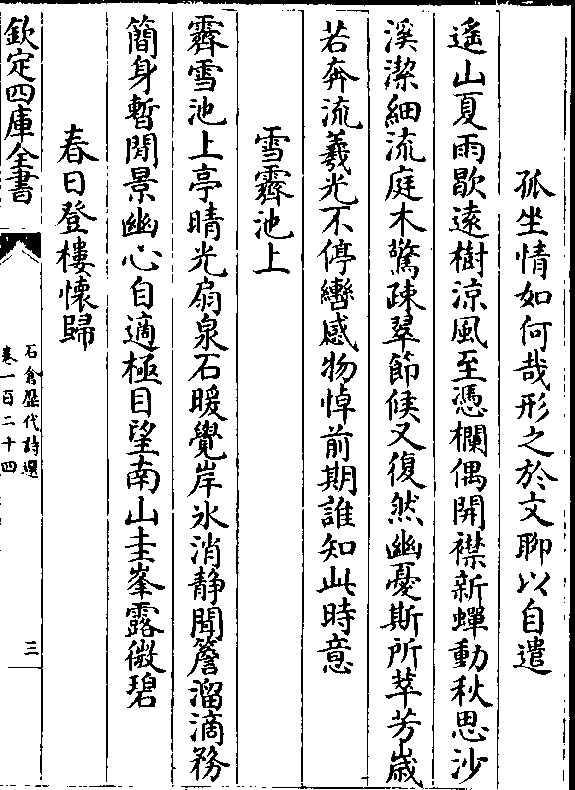 孤坐情如何哉形之於文聊以自遣
遙山夏雨歇遠樹涼風至憑欄偶開襟新蟬動秋思沙
溪潔細流庭木驚疎翠節候又復然幽憂斯所萃芳歳
若奔流羲光不停轡感物悼前期誰知此時意
雪霽池上
霽雪池上亭晴光扇泉石暖覺岸氷消静聞簷溜滴務
簡身暫閒景幽心自適極目望南山圭峯露微碧
春日登樓懷歸
欽定四庫全書
石倉歴代詩選
卷一百二十四
三